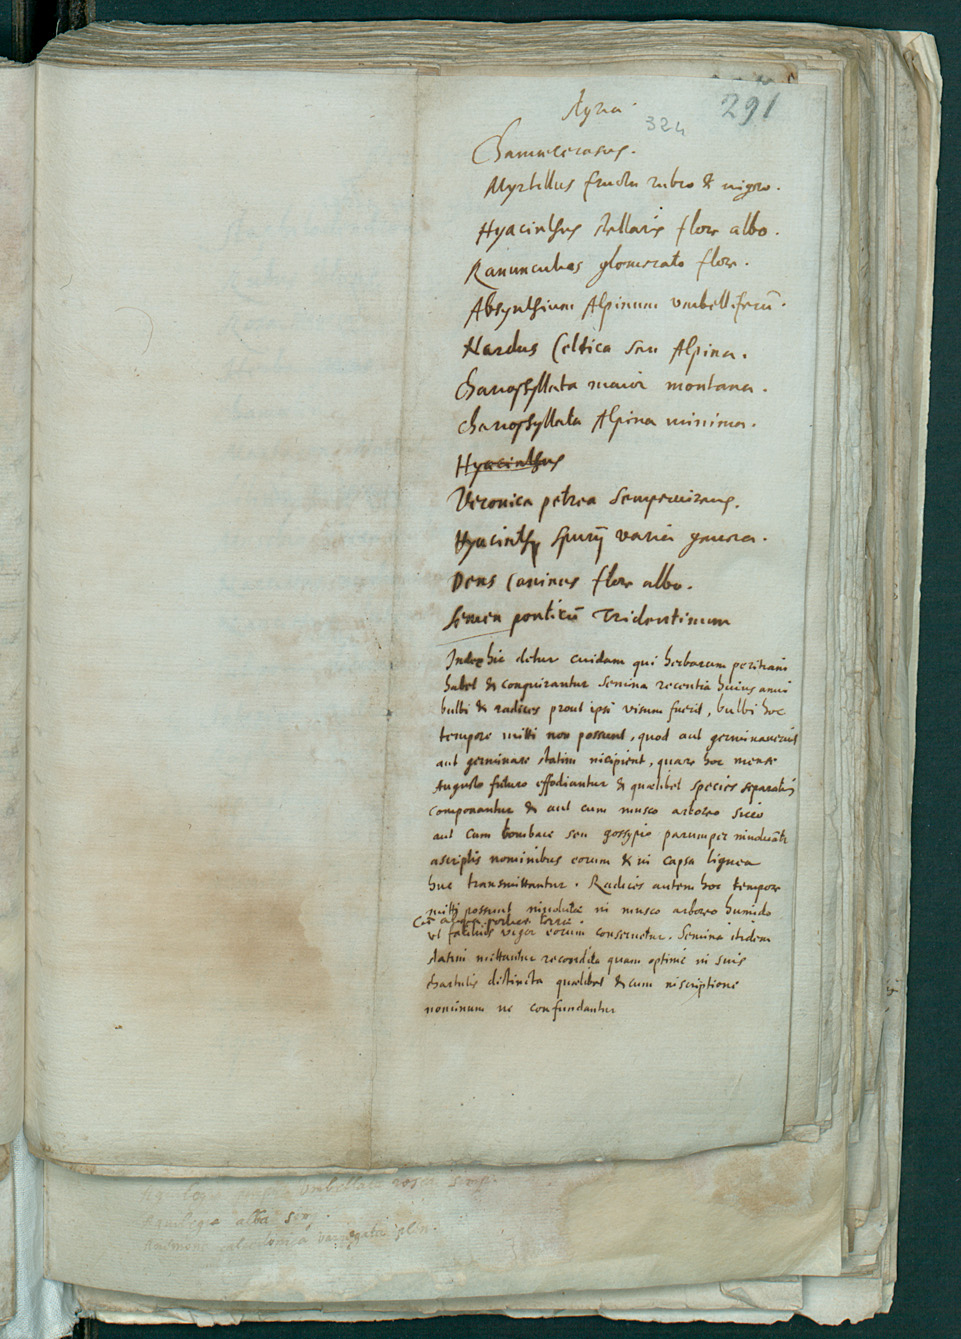 291
324
Chamęcerasus.
Myrtillus fructu rubro & nigro.
Hyacinthus stellaris flore albo.
Ranunculus glomerato flore.
Absynthium Alpinum umbelliferū.
Nardus Celtica seu Alpina.
Chariophyllata maior montana.
Chariophyllata Alpina minima.
Hyacinthus
Veronica petrea sempervirens.
Hyacinthi spurij varia genera.
Dens Caninus flore albo.
Semen ponticū Tridentinum
Index hic detur cuidam qui herbarum peritiam
habet & conquirantur semina recentia huius anni
bulbi & radices prout ipsi visum fuerit, bulbi hoc
tempore mitti non possunt, quod aut germinaverint
aut germinare statim incipient, quare hoc mense
Augusto futuro effodiantur & quælibet species separatim
componantur & aut cum musco arboreo sicco
aut cum bombace seu gossypio parumper
ascriptis nominibus eorum & in capsa lignea
huc transmittantur. Radices autem hoc tempore
mitti possunt in musco arboreo humido
Cū aliqua terræ
ut facilius vigor eorum conservetur. Semina itidem
statim mittantur recondita quam optime in suis
chartulis distincta quælibet & cum inscriptione
nominum ne confundantur
umbellata rosea semp.
alba semp.
Anemone calcedonica varięgata plen.